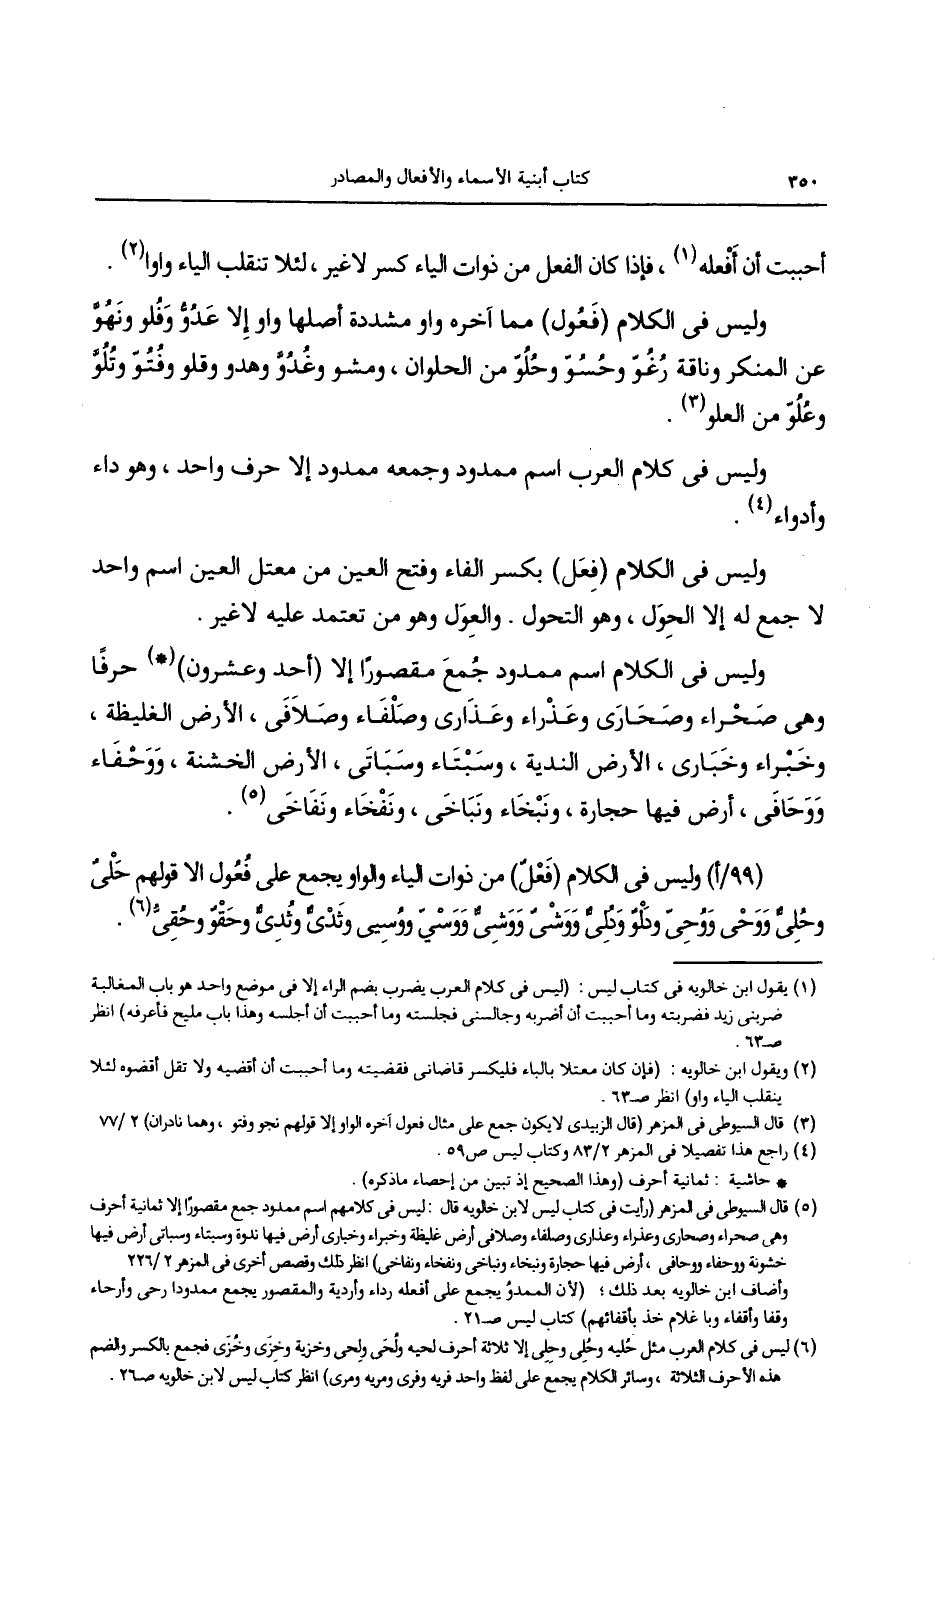 ٣٥٠ كتاب أبنية الأسماء والأفعال والمصادر
أحببت أن أَفْعله(١) ، فإذا كان الفعل من ذوات الياء كسر لاغير ، لئلا تنقلب الياء واوا(٢) .
وليس فى الكلام (فَعُول) مما آخره واو مشددة أصلها واو إلا عَدُوُّ وَفَلو ونَهُوٌّ
عن المنكر وناقة رُغُوّ وحُسُوّ وحُلُوّ من الحلوان ، ومشو وغُدُوٌّ وهدو وقلو وفُتُوّ وتُلُوٌّ
وعُلُوّ من العلو(٣) .
وليس فى كلام العرب اسم ممدود وجمعه ممدود إلا حرف واحد ، وهو داء
وأدواء(٤) .
وليس فى الكلام (فِعَل) بكسر الفاء وفتح العين من معتل العين اسم واحد
لا جمع له إلا الحِوَل ، وهو التحول . والعِوَل وهو من تعتمد عليه لاغير .
وليس فى الكلام اسم ممدود جُمعَ مقصورًا إلا (أحد وعشرون)(*) حرفًا
وهى صَحْراء وصَحَارَى وعَذْراء وعَذَارى وصَلْفَاء وصَلَافَى ، الأرض الغليظة ،
وخَبْراء وخَبَارى ، الأرض الندية ، وسَبْتَاء وسَبَاتَى ، الأرض الخشنة ، وَوَحْفَاء
وَوَحَافَى ، أرض فيها حجارة ، ونَبْخَاء ونَبَاخَى ، ونَفْخَاء ونَفَاخَى(٥) .
(٩٩/أ) وليس فى الكلام (فَعْلٌ) من ذوات الياء والواو يجمع على فُعُول الا قولهم حَلْىٌ
وحُلِىٌّ وَوَحْى وَوُحِىّ ودَلْوٌ وَدُلِىٌّ وَوَشْىٌ وَوُشِىٌّ وَوَسْيٌ ووُسِيى وثَدْىٌ وثُدِىٌّ وحَقْوٌ وحُقِىٌّ(٦) .
(١) يقول ابن خالويه فى كتاب ليس : (ليس فى كلام العرب يضرب بضم الراء إلا فى موضع واحد هو باب المغالبة
ضربنى زيد فضربته وما أحببت أن أضربه وجالسنى فجلسته وما أحببت أن أجلسه وهذا باب مليح فأعرفه) انظر
صـ٦٣ .
(٢) ويقول ابن خالويه : (فإن كان معتلا بالياء فليكسر قاضانى فقضيته وما أحببت أن أقضيه ولا تقل أقضوه لئلا
ينقلب الياء واو) انظر صـ٦٣ .
(٣) قال السيوطى فى المزهر (قال الزبيدى لايكون جمع على مثال فعول آخره الواو إلا قولهم نجو وفتو ، وهما نادران) ٢ /٧٧
(٤) راجع هذا تفصيلا فى المزهر ٨٣/٢ وكتاب ليس ص٥٩ .
* حاشية : ثمانية أحرف (وهذا الصحيح إذ تبين من إحصاء ماذكره) .
(٥) قال السيوطى فى المزهر (رأيت فى كتاب ليس لابن خالويه قال : ليس فى كلامهم اسم ممدود جمع مقصورًا إلا ثمانية أحرف
وهى صحراء وصحارى وعذراء وعذارى وصلفاء وصلافى أرض غليظة وخبراء وخبارى أرض فيها ندوة وسبتاء وسباتى أرض فيها
خشونة ووحفاء ووحافى ، أرض فيها حجارة ونبخاء ونباخى ونفخاء ونفاخى) انظر ذلك وقصص أخرى فى المزهر ٢ /٢٢٦
وأضاف ابن خالويه بعد ذلك ؛ (لأن الممدوُ يجمع على أفعله رداء وأردية والمقصور يجمع ممدودا رحى وأرحاء
وقفا وأقفاء وبا غلام خذ بأقفائهم) كتاب ليس صـ٢١ .
(٦) ليس فى كلام العرب مثل حُليه وحُلِى وحِلِى إلا ثلاثة أحرف لحيه ولُحَى ولِحى وخزية وخِزَى وخُزَى فجمع بالكسر والضم
هذه الأحرف الثلاثة ، وسائر الكلام يجمع على لفظ واحد فريه وفرى ومريه ومرى) انظر كتاب ليس لابن خالويه صـ٢٦ .